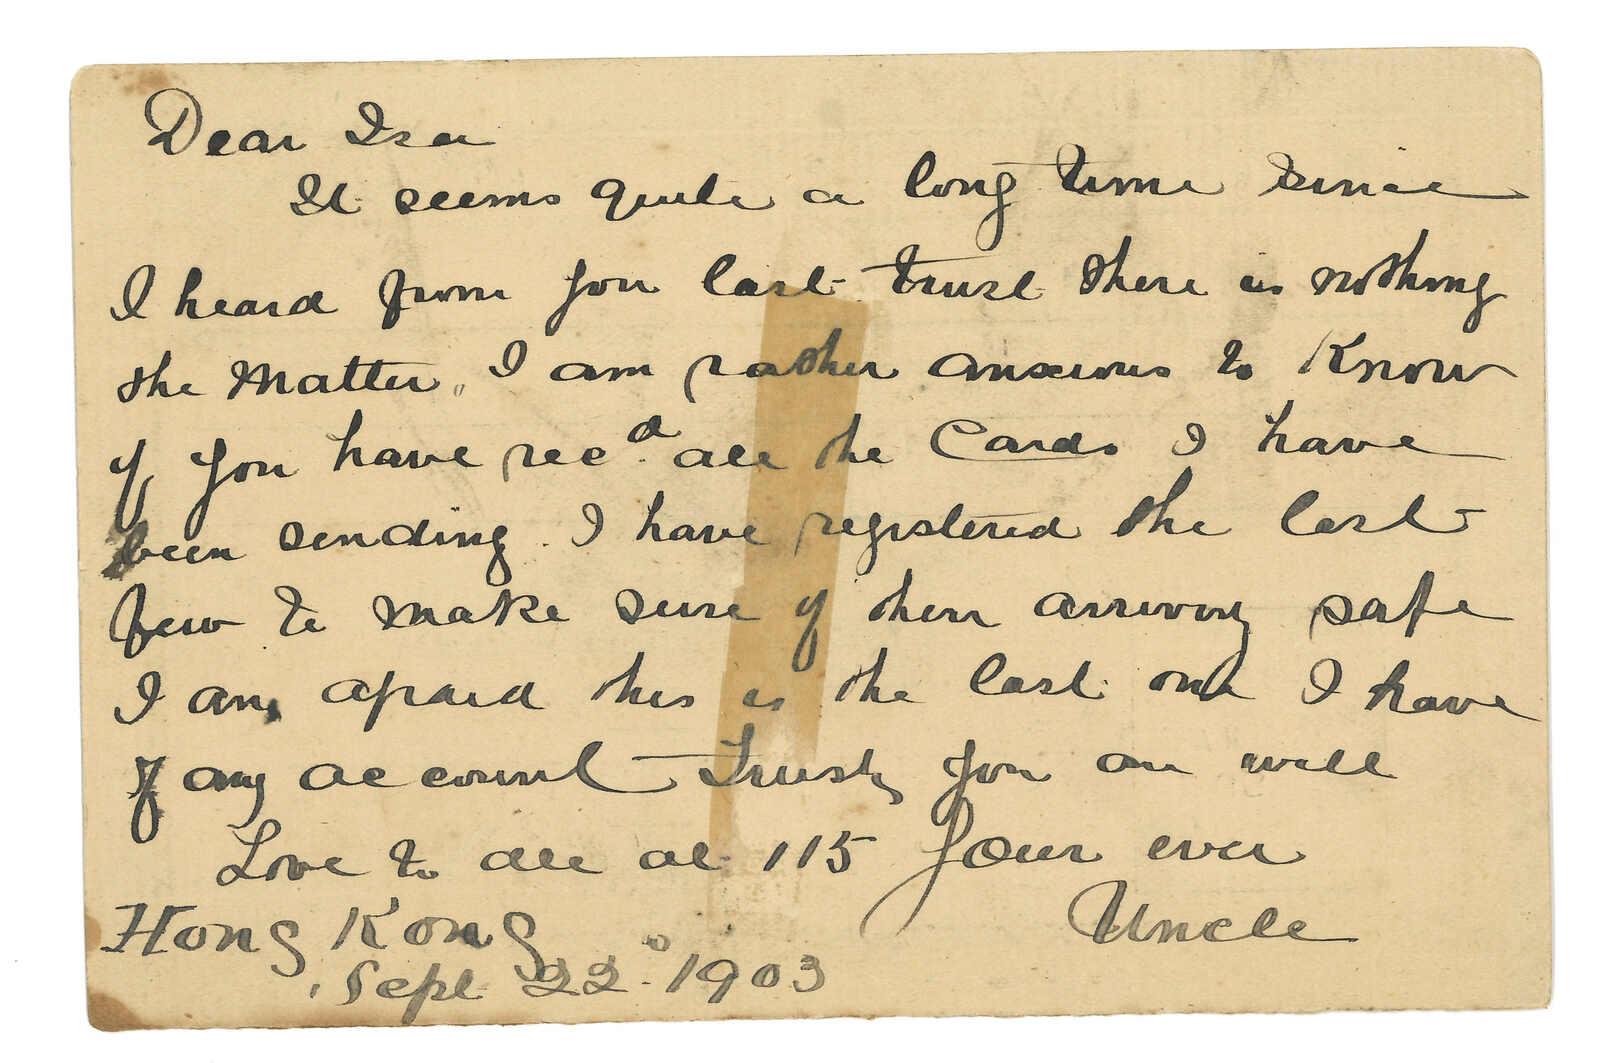 Dear Isa
It seems quite a long time since
I heard from you last trust there is nothing
the Matter, I am rather anxious to Know
if you have rec.d all the Cards I have
been sending. I have registered the last
few to make sure of their arriving safe
I am afraid this is the last one I have
of any account Trusting you are well
Love to all at 115 Your ever
Uncle
Hong Kong
Sept 22d 1903